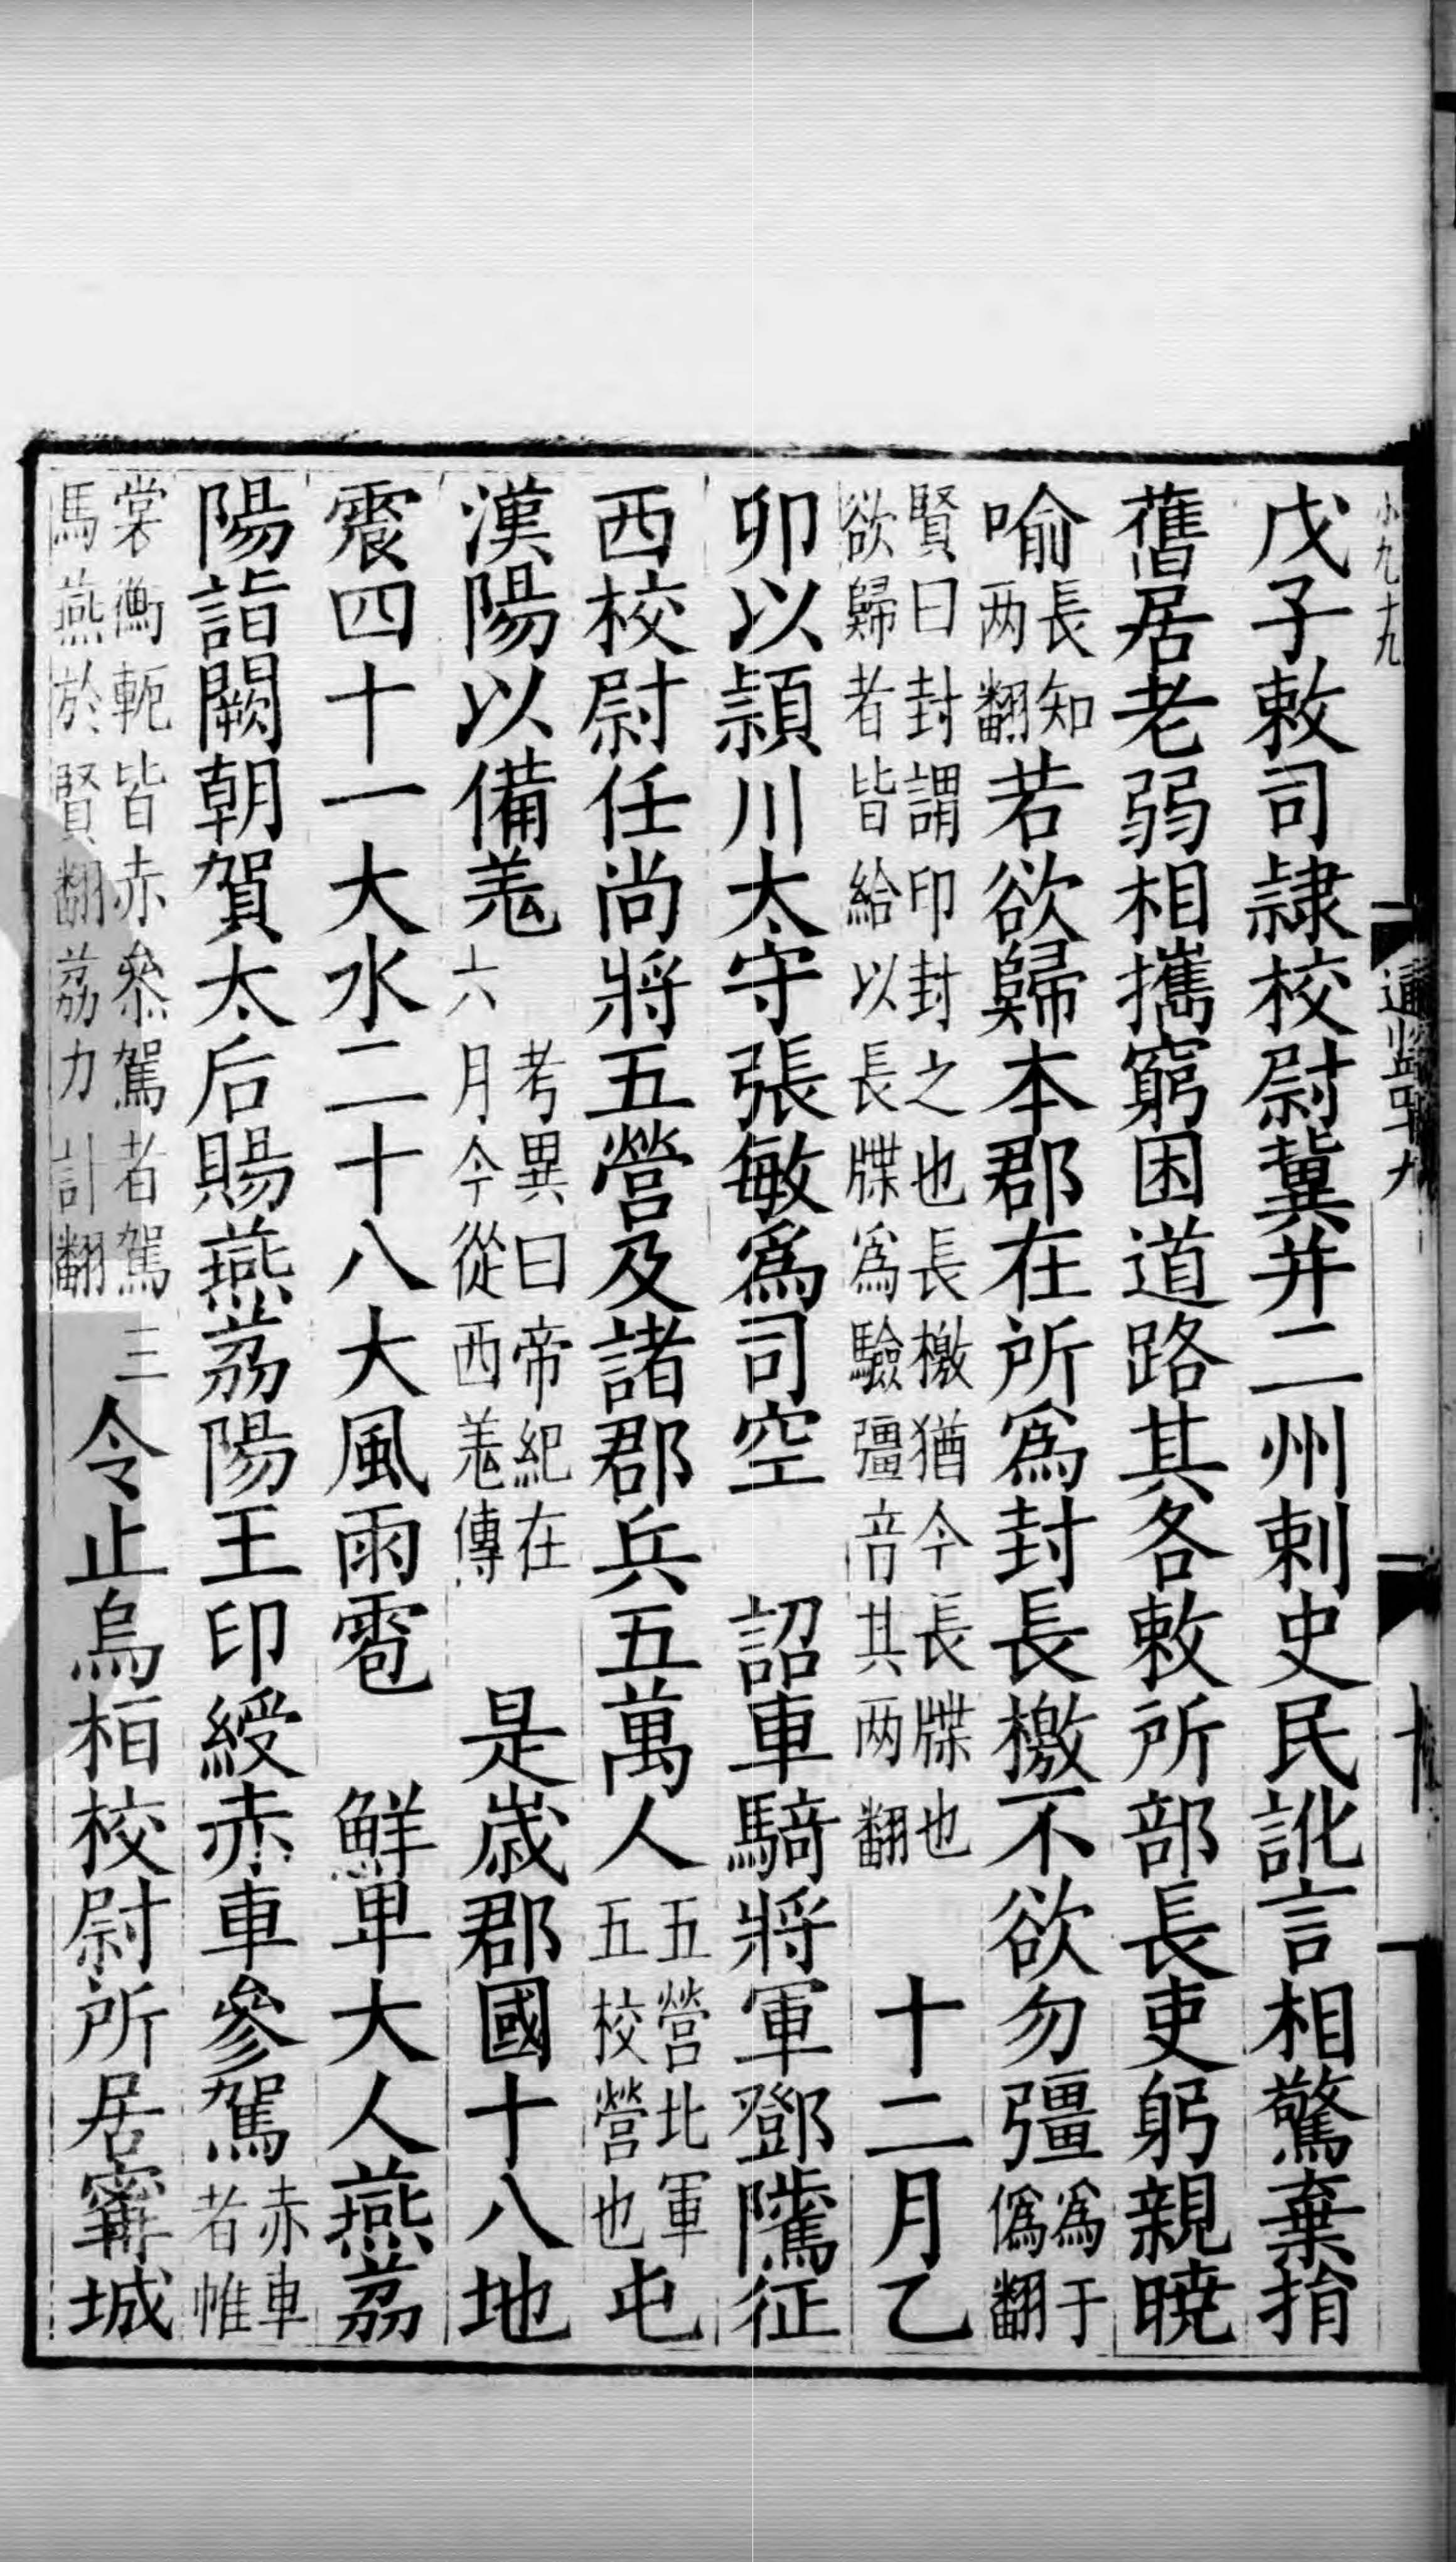 戊子敕司隷校尉冀并二州刺史民訛言相驚棄捐
舊居老弱相攜窮困道路其各敕所部長吏躬親曉
喻長知两翻若欲歸本郡在所爲封長檄不欲勿彊爲于僞翻
賢曰封謂印封之也長檄猶今長牒也欲歸者皆給以長牒爲驗彊音其两翻　十二月乙
卯以潁川太守張敏爲司空　詔車騎將軍鄧騭征
西校尉任尚將五營及諸郡兵五萬人五營北軍五校營也屯
漢陽以備羌考異曰帝紀在六月今從西羌傳　是歲郡國十八地
震四十一大水二十八大風雨雹　鮮卑大人燕荔
陽詣闕朝賀太后賜燕荔陽王印綬赤車參駕赤車者帷
裳衡軛皆赤叅駕者駕三馬燕於賢翻荔力計翻令止烏桓校尉所居寗城
小九十九
通鑑四十九